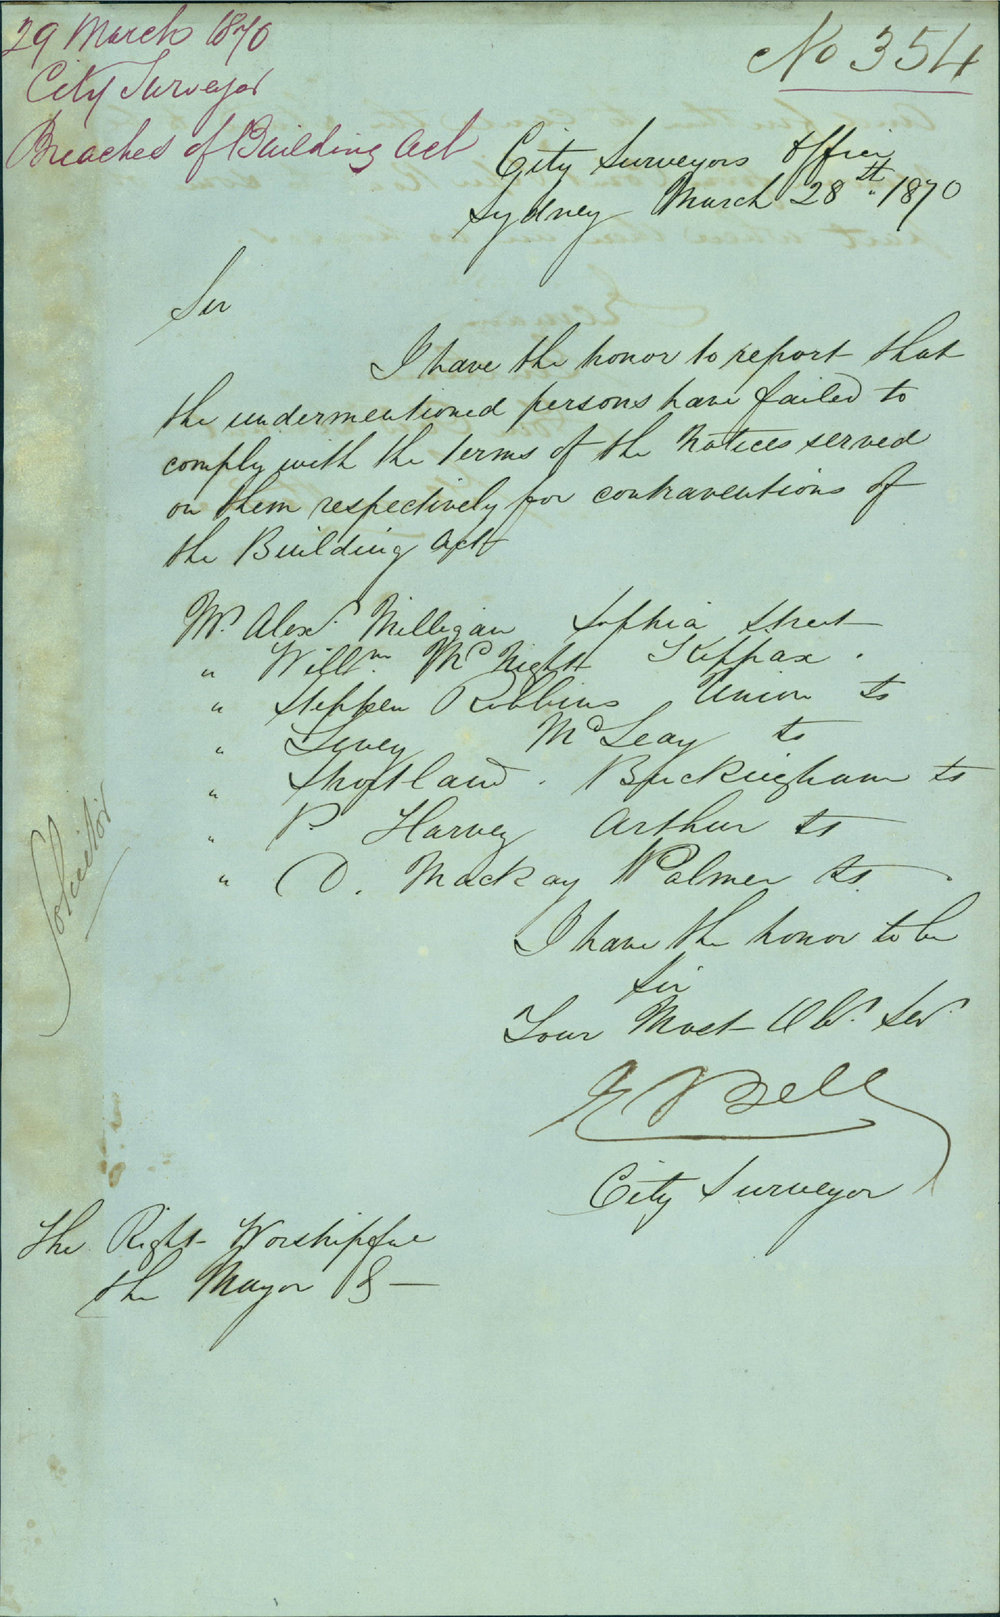 29 March 1870
City Surveyor
Breaches of Building Act
No 354
City Surveyors Office
Sydney March 28th. 1870
Sir
I have the honor to report that
the undermentioned persons have failed to
comply with the terms of the Notices served
on them respectively for contraventions of
the Building Act
Mr. Alexr. Milligan Sophia Street
" Willm. McNight Kippax "
" Stephen Robbins Union St
" Levey McLeay St
" Shortland . Buckingham St
" P. Harvey Arthur St
" D. Mackay Palmer St
I have the honor to be
Sir
Your Most Obt. Ser.
E Bell
City Surveyor
The Right Worshipful
the Mayor &
Solicitor